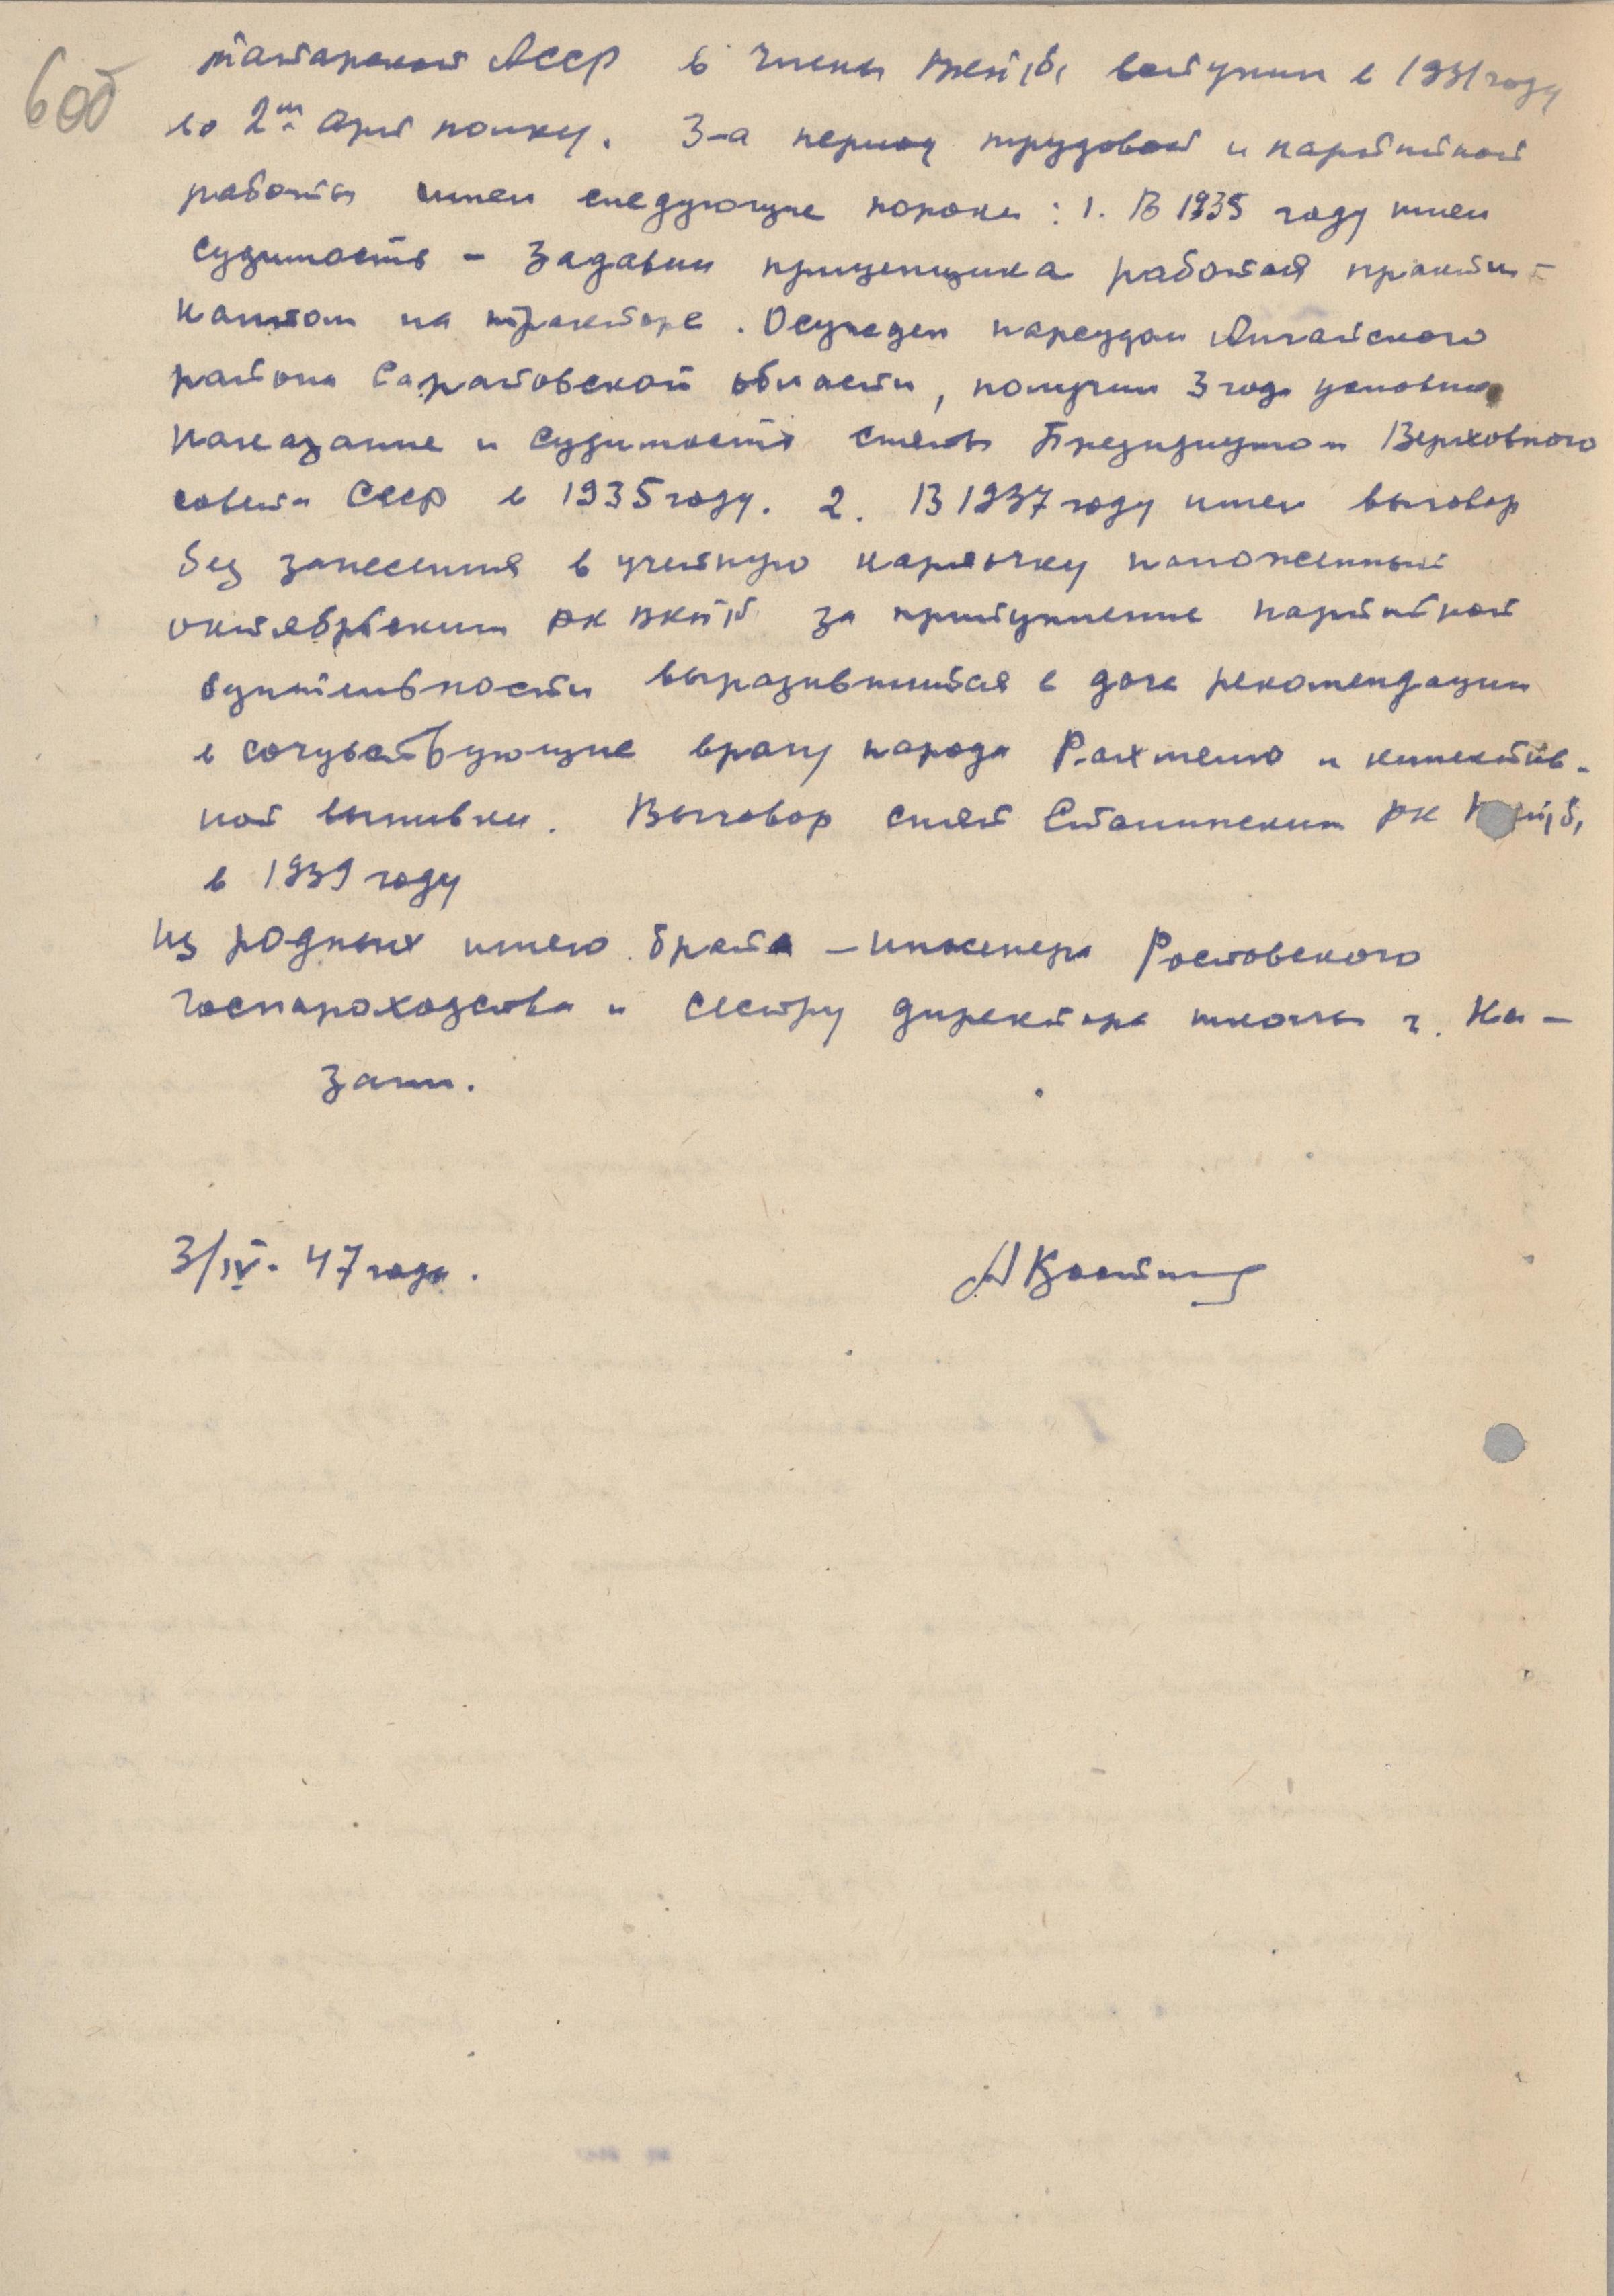 6об
татарской АССР в члены ВКП/б/ вступил в 1931 году
во 2м арт полку. З-а период трудовой и партийной
работы имел следующие пороки: 1. В 1935 году имел
судимость - задавил прицепщика работая практи-
кантом на тракторе. Осужден нарсудом
района Саратовской области, получил 3 года условно
наказание и судимость снята Президиумом Верховного
совета СССР в 1935 году. 2. В 1937 году имел выговор
без занесения в учетную карточку наложенный
октябрьским РК ВКП/б за притупление партийной
бдительности выразившийся в даче рекомендации
в сочувствующие врагу народа и коллектив-
ной выпивки. Выговор снят Сталинским РК ВКП/б/
в 1939 году
Из родных имею брата - инженера Ростовского
Госпароходства и сестру директора школы г. Ка-
зани.
3/IV- 47 года.